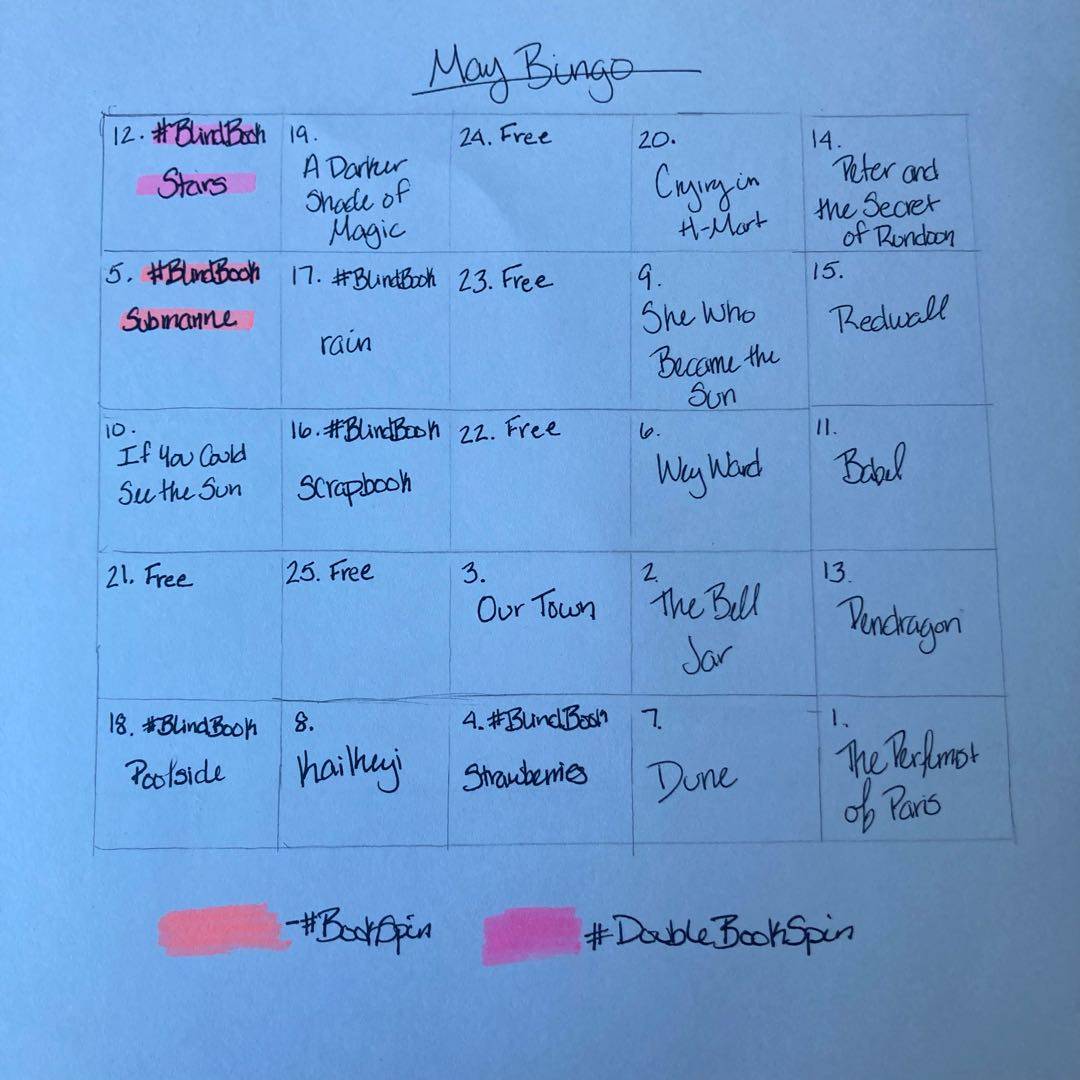 May Bingo
12. #BlindBook
Stars
19.
A Darker
Shade of
Magic
24. Free
20.
Crying in
H-Mart
14.
Peter and
the Secret
of Rundoon
5. #BlindBook
Submarine
17. #BlindBook
rain
23. Free
9.
She Who
Became the
Sun
15.
Redwall
10.
If You Could
See the Sun
16. #BlindBook
Scrapbook
22. Free
6.
Wey Ward
11.
Babel
21. Free
25. Free
3.
Our Town
2.
The Bell
Jar
13.
Pendragon
18. #BlindBook
Poolside
8.
Kaikeyi
4. #BlindBook
Strawberries
7.
Dune
1.
The Perfumist
of Paris
-#BookSpin
#DoubleBookSpin